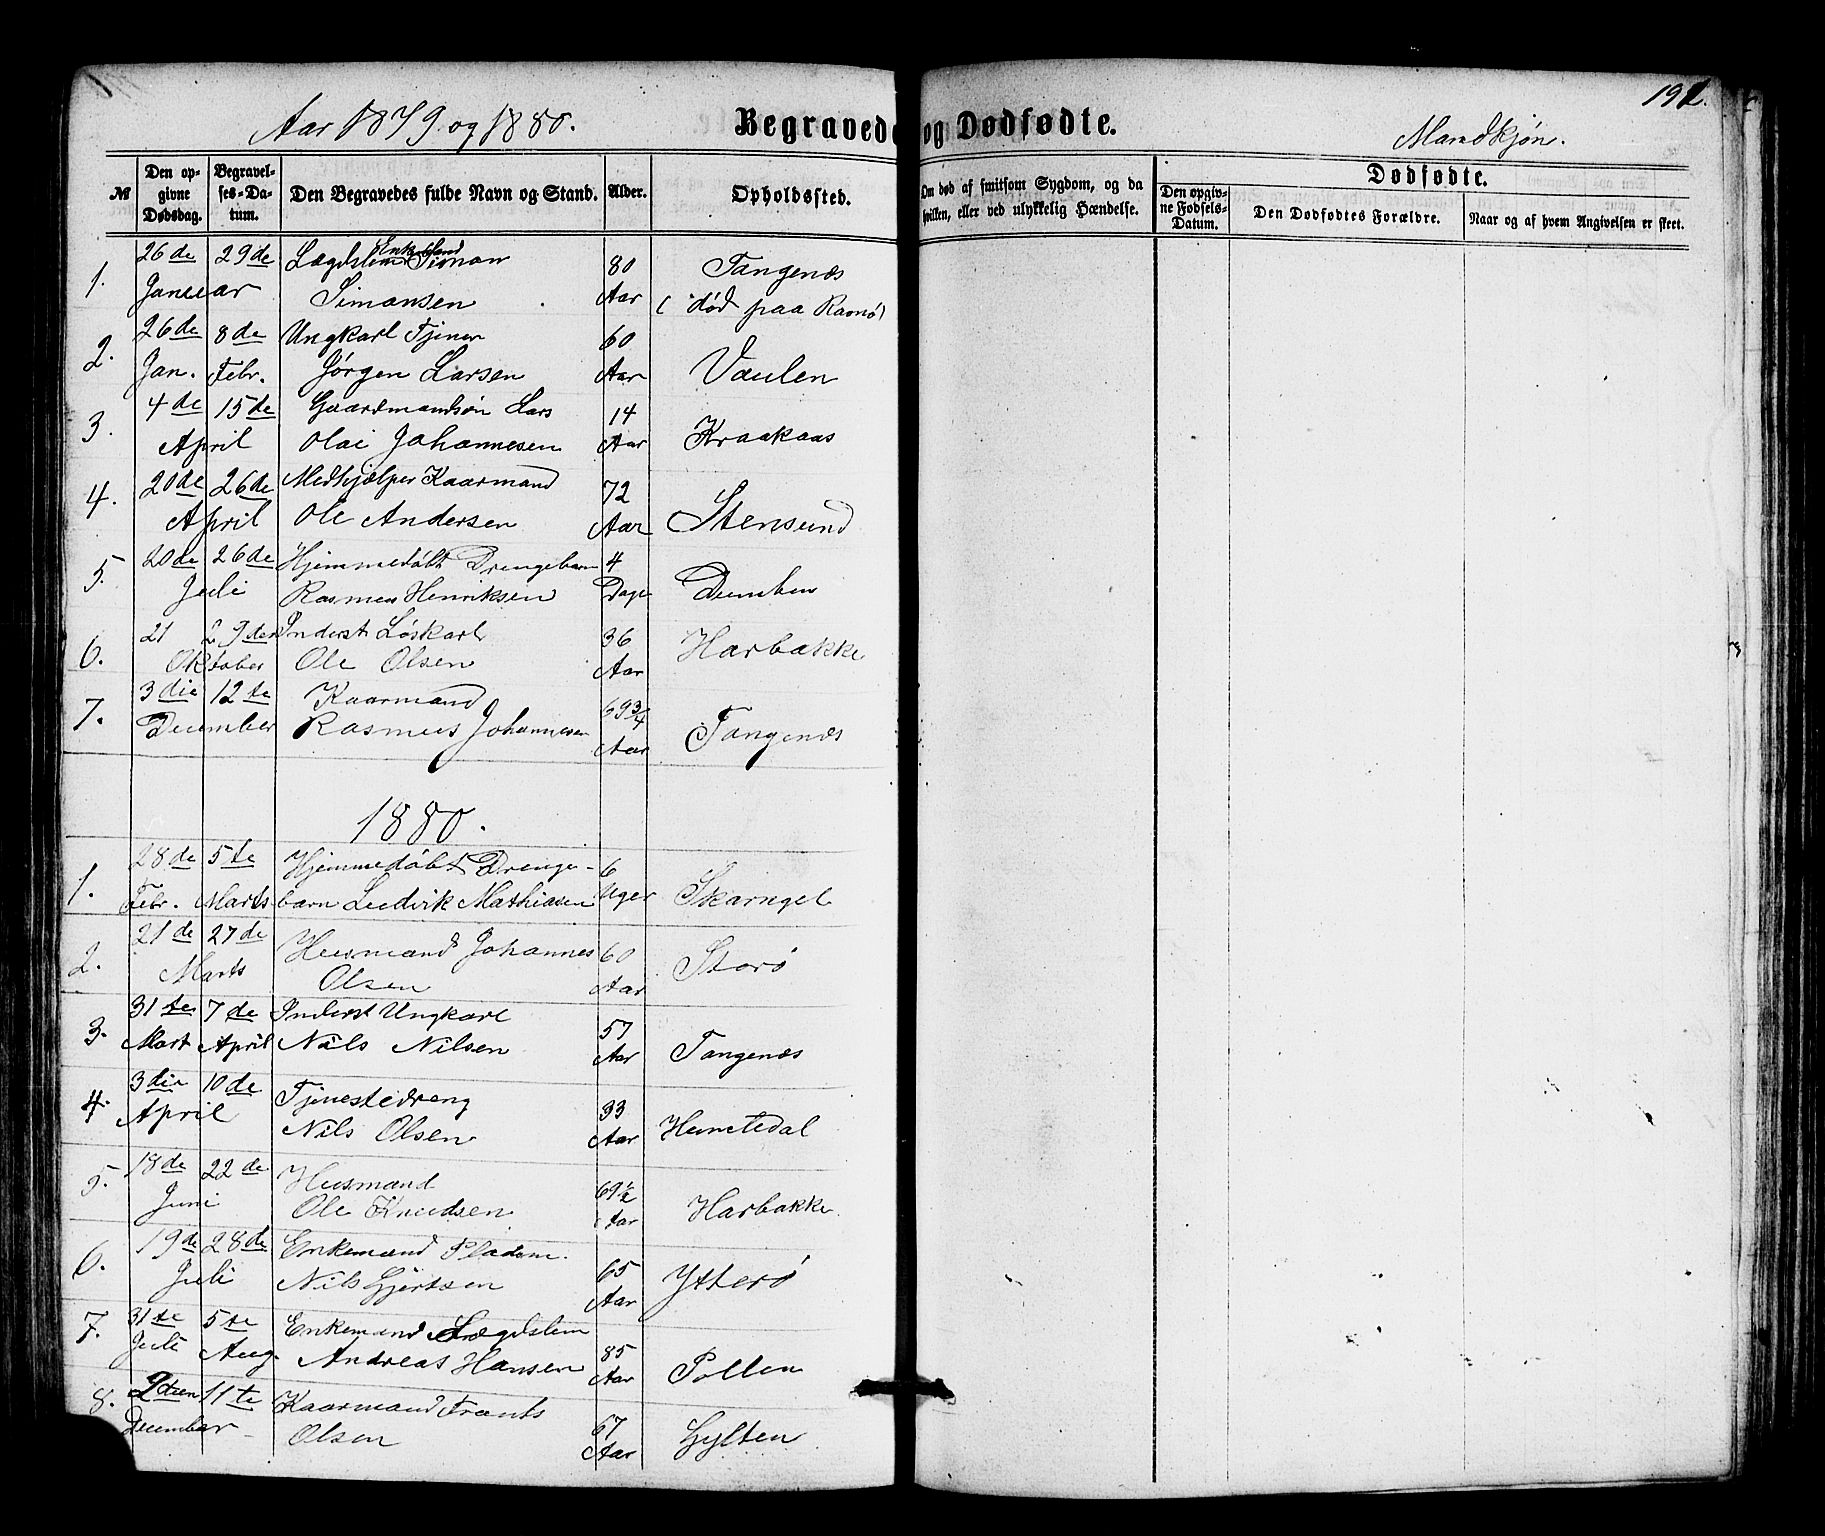 Aar 1879 og 1880.
Begravede og Dødfødte.
Mandkjøn.
191.
№
Den opgivne Dødsdag.
Begravelses-Datum.
Den Begravedes fulde Navn og Stand.
Alder.
Opholdssted.
Om død af smitsom Sygdom, og da hvilken, eller ved ulykkelig Hændelse.
Dødfødte.
Den opgivne Fødsels-Datum.
Den Dødfødtes Forældre.
Naar og af hvem Angivelsen er skeet.
1. 26de 29de Lægdslem Enkemand Simon 80 Tangenæs
Januar Simonsen Aar (død paa Ramsø)
2. 26de 8de Ungkarl Tjener 60
Jan. Febr. Jørgen Larsen Aar Vaulen
3. 4de 15de Gaardmandsøn Lars 14
April Olai Johannesen Aar Kraakaas
4. 20de 26de Medhjælper Kaarmand 72
April Ole Andersen Aar Stensund
5. 20de 26de Hjemmedøbt Drengebarn 4
Juli Rasmus Henriksen Dage Dumben
6. 21 29de Inderst Løskarl 36
Oktober Ole Olsen Aar Harbakke
7. 3die 12te Kaarmand 69 3/4
December Rasmus Johannesen Aar Tangenæs
1880.
1. 28de 5te Hjemmedøbt Drenge- 6
Febr. Marts barn Ludvik Mathiasen Uger Skarngel
2. 21de 27de Husmand Johannes 60
Marts Olsen Aar Storø
3. 31te 7de Inderst Ungkarl 57
Mart April Nils Nilsen Aar Tangenæs
4. 3die 10de Tjenestedreng 33
April Nils Olsen Aar Hemstedal
5. 18de 22de Husmand 69 1/2
Juni Ole Knudsen Aar Harbakke.
6. 19de 28de Enkemand Pladsm. 65
Juli Nils Gjertsen Aar Ytterø
7. 31te 5te Enkemand Lægdslem 85
Juli Aug. Andreas Hansen Aar Pollen
8. 2den 11te Kaarmand Frants 67
December Olsen Aar Gylten